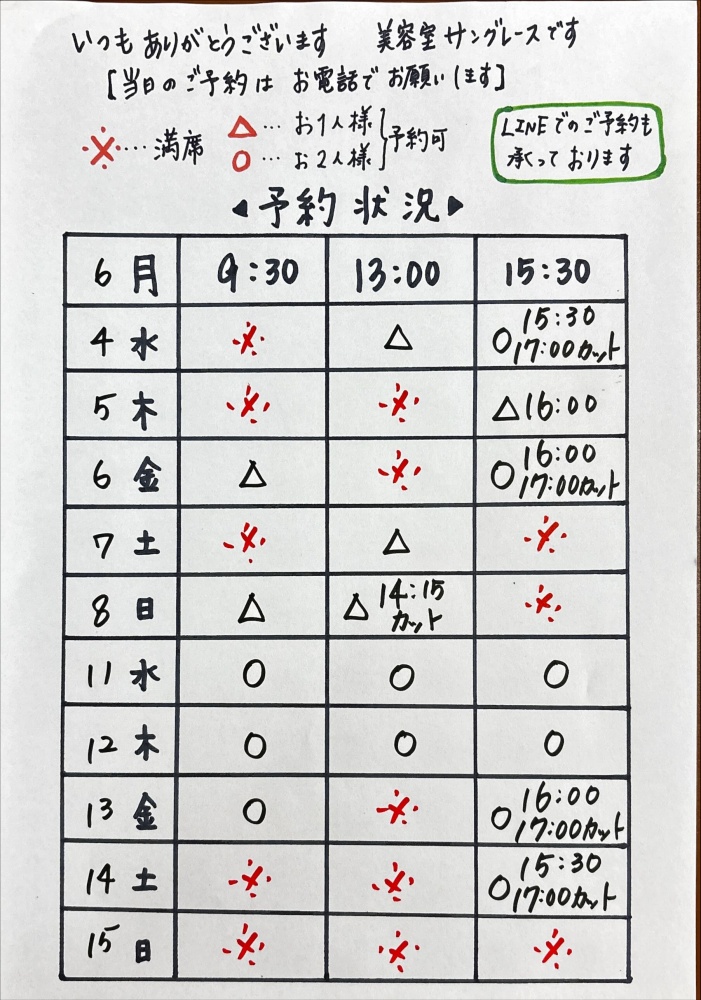 いつもありがとうございます 美容室サングレースです
[当日のご予約は お電話でお願いします]
※…満席 △…お1人様 ○…お2人様 予約可
LINEでのご予約も
承っております
◀予約状況▶
6月 9:30 13:00 15:30
4 水 ※ △ ○15:30 17:00カット
5 木 ※ ※ △16:00
6 金 △ ※ ○16:00 17:00カット
7 土 ※ △ ※
8 日 △ △14:15カット ※
11 水 ○ ○ ○
12 木 ○ ○ ○
13 金 ○ ※ ○16:00 17:00カット
14 土 ※ ※ ○15:30 17:00カット
15 日 ※ ※ ※